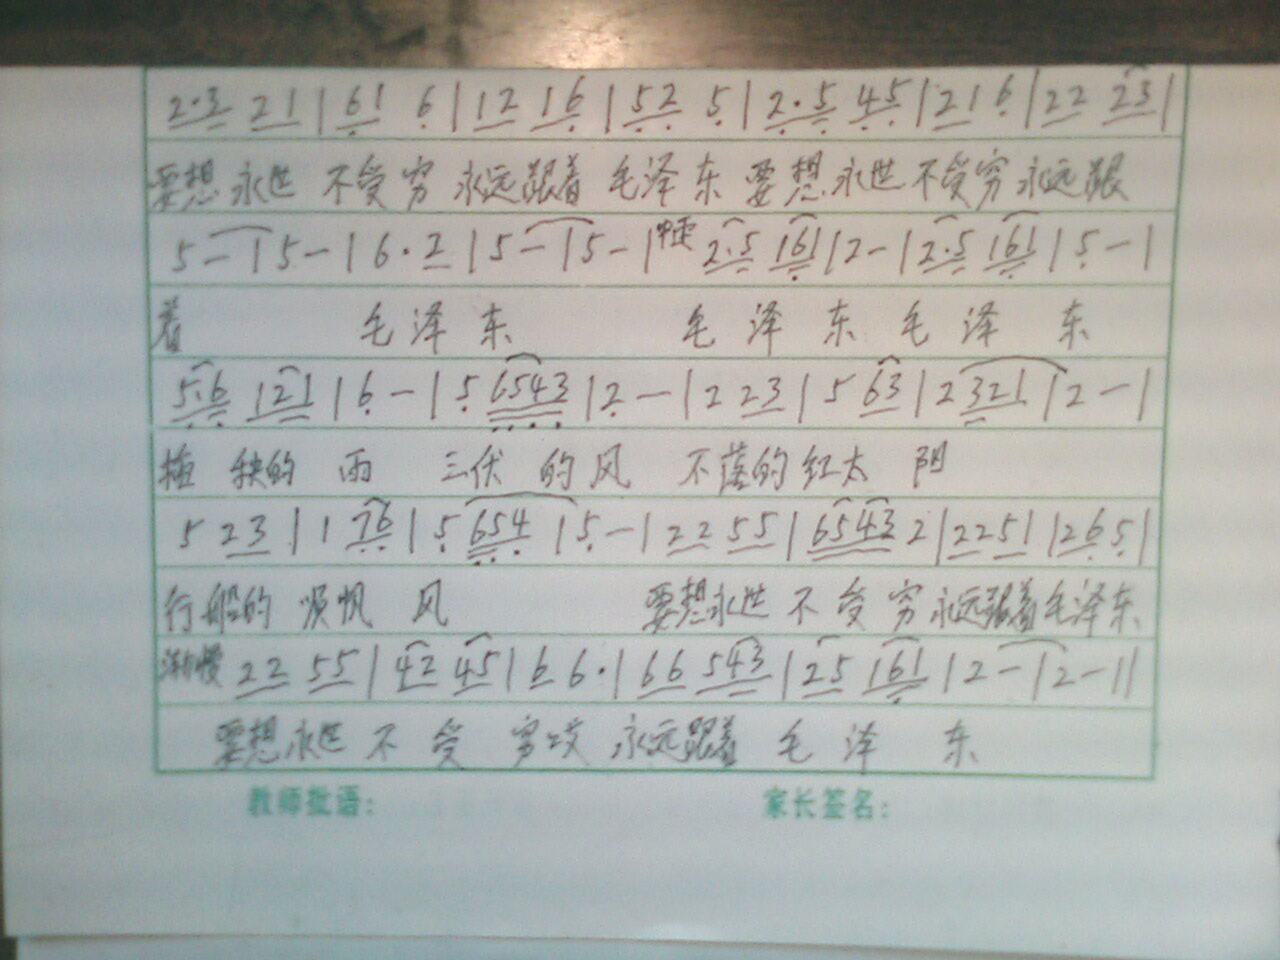 2·3 21|61 6|12 16|52 5|2·5 45|21 6|22 23|
要想永世不受穷永远跟着毛泽东要想永世不受穷永远跟
5—|5—|6·2|5—|5—|中速 2·5 161|2—|2·5 161|5—|
着 毛泽东 毛泽东毛泽东
5·6 121|6—|5 6543|2—|2 23|5 63|2 321|2—|
插秧的雨 三伏的风 不落的红太阳
5 23|1 76|5 654|5—|22 55|6543 2|22 51|26 5|
行船的顺帆风 要想永世不受穷永远跟着毛泽东
渐慢 22 55|42 45|6 6·|66 543|25 161|2—|2—||
要想永世不受穷 永远跟着毛泽东
教师批语： 家长签名：